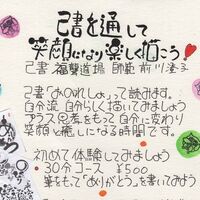 己書を通して
笑顔になり楽しく描こう!
己書 福響道場 師範 前川淳子
己書「おのれしょ」って読みます。
自分流 自分らしく描いてみましょう
プラス思考をもって自分に変わり
笑顔で癒しになる時間です。
初めて体験してみましょう
・30分コース ¥500
筆をもって「ありがとう」を書いてみよう